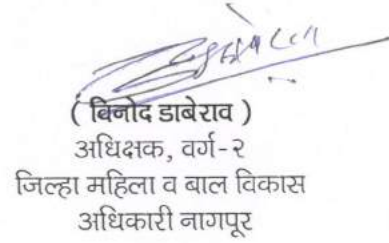 ( विनोद डाबेराव )
अधिक्षक, वर्ग-२
जिल्हा महिला व बाल विकास
अधिकारी नागपूर